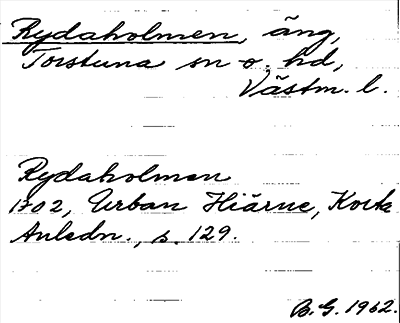 Rydaholmen, äng,
Torstuna sn o. hd,
Västm. l.
Rydaholmen
1702, Urban Hiärne, Korta
Anledn., s. 129.
B.G. 1962.